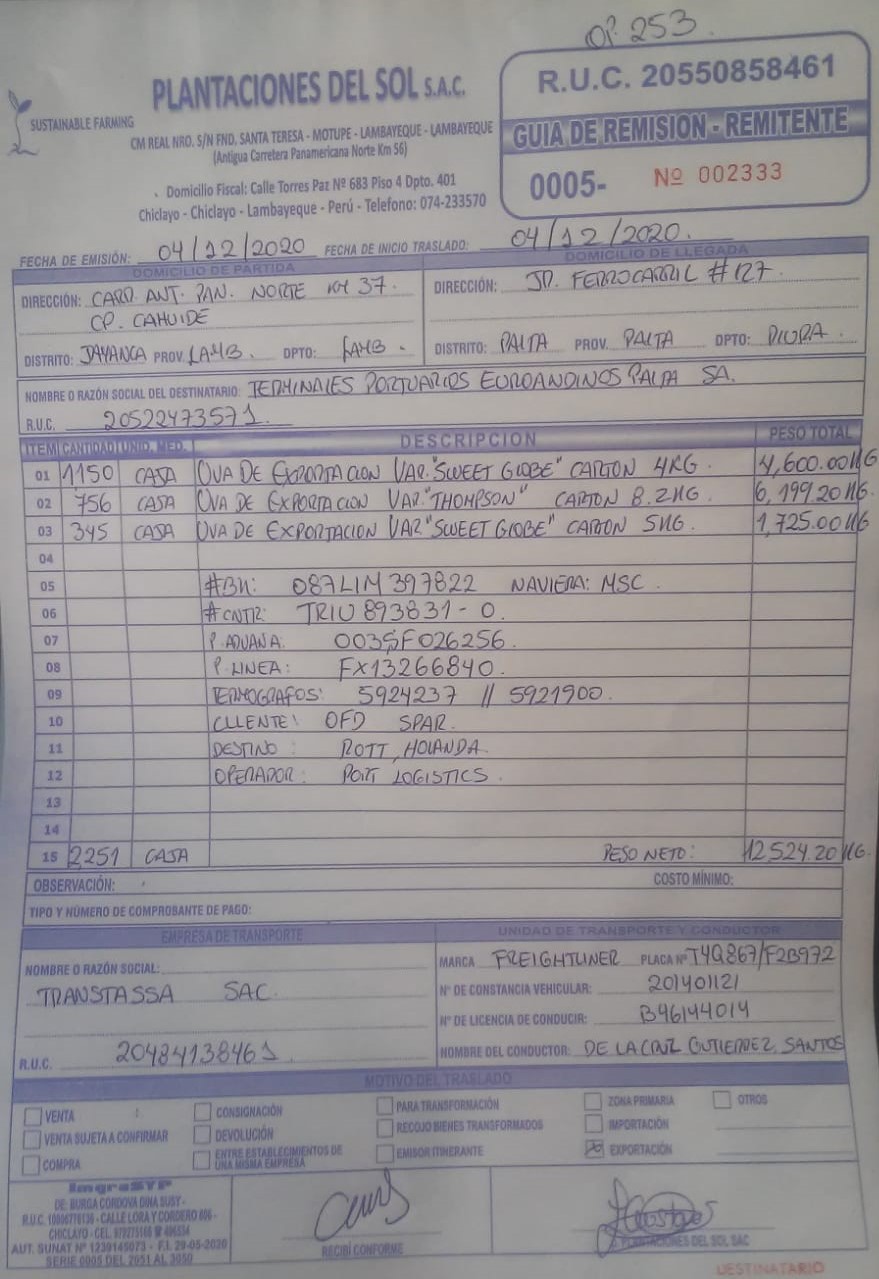 OP. 253.
PLANTACIONES DEL SOL S.A.C.
SUSTAINABLE FARMING
CM REAL NRO. S/N FND. SANTA TERESA - MOTUPE - LAMBAYEQUE - LAMBAYEQUE
(Antigua Carretera Panamericana Norte Km 56)
Domicilio Fiscal: Calle Torres Paz Nº 683 Piso 4 Dpto. 401
Chiclayo - Chiclayo - Lambayeque - Perú - Telefono: 074-233570
R.U.C. 20550858461
GUIA DE REMISIÓN - REMITENTE
0005- Nº 002333
FECHA DE EMISIÓN: 04/12/2020 FECHA DE INICIO TRASLADO: 04/12/2020.
DOMICILIO DE PARTIDA
DIRECCIÓN: CARR. ANT. PAN. NORTE KM 37.
CP. CAHUIDE
DISTRITO: JAYANCA PROV. LAMB. DPTO: LAMB.
DOMICILIO DE LLEGADA
DIRECCIÓN: JR. FERROCARRIL # 127.
DISTRITO: PAITA PROV. PAITA DPTO: PIURA.
NOMBRE O RAZÓN SOCIAL DEL DESTINATARIO: TERMINALES PORTUARIOS EUROANDINOS PAITA SA.
R.U.C. 20522473571.
ITEM CANTIDAD UNID. MED. DESCRIPCION PESO TOTAL
01 1150 CAJA UVA DE EXPORTACION VAR. "SWEET GLOBE" CARTON 4KG. 4,600.00KG
02 756 CAJA UVA DE EXPORTACION VAR. "THOMPSON" CARTON 8.2KG. 6,199.20KG.
03 345 CAJA UVA DE EXPORTACION VAR. "SWEET GLOBE" CARTON 5KG. 1,725.00KG
04
05 #BK: 087LIM397822 NAVIERA: MSC.
06 #CNTR: TRIU 893831-0.
07 P. ADUANA: 003SF026256.
08 P. LINEA: FX13266840.
09 TERMOGRAFOS: 5924237 // 5921900.
10 CLIENTE: OFD SPAR.
11 DESTINO: ROTT, HOLANDA.
12 OPERADOR: PORT LOGISTICS.
13
14
15 2251 CAJA PESO NETO: 12,524.20 KG.
OBSERVACIÓN: COSTO MÍNIMO:
TIPO Y NÚMERO DE COMPROBANTE DE PAGO:
EMPRESA DE TRANSPORTE
NOMBRE O RAZÓN SOCIAL:
TRANSTASSA SAC.
R.U.C. 20484138461.
UNIDAD DE TRANSPORTE Y CONDUCTOR
MARCA FREIGHTLINER PLACA Nº T4Q867/F2B972
Nº DE CONSTANCIA VEHICULAR: 201401121
Nº DE LICENCIA DE CONDUCIR: B46144014
NOMBRE DEL CONDUCTOR: DE LA CRUZ GUTIERREZ, SANTOS
MOTIVO DEL TRASLADO
VENTA
VENTA SUJETA A CONFIRMAR
COMPRA
CONSIGNACIÓN
DEVOLUCIÓN
ENTRE ESTABLECIMIENTOS DE
UNA MISMA EMPRESA
PARA TRANSFORMACIÓN
RECOJO BIENES TRANSFORMADOS
EMISOR ITINERANTE
ZONA PRIMARIA
IMPORTACIÓN
EXPORTACIÓN
OTROS
ImgraSYP
DE: BURGA CORDOVA DINA SUSY -
CALLE LORA Y CORDERO
CHICLAYO - CEL.
AUT. SUNAT Nº 1239145073 - F.I. 29-05-2020
SERIE 0005 DEL 2051 AL 3050
RECIBÍ CONFORME
P. PLANTACIONES DEL SOL SAC
DESTINATARIO